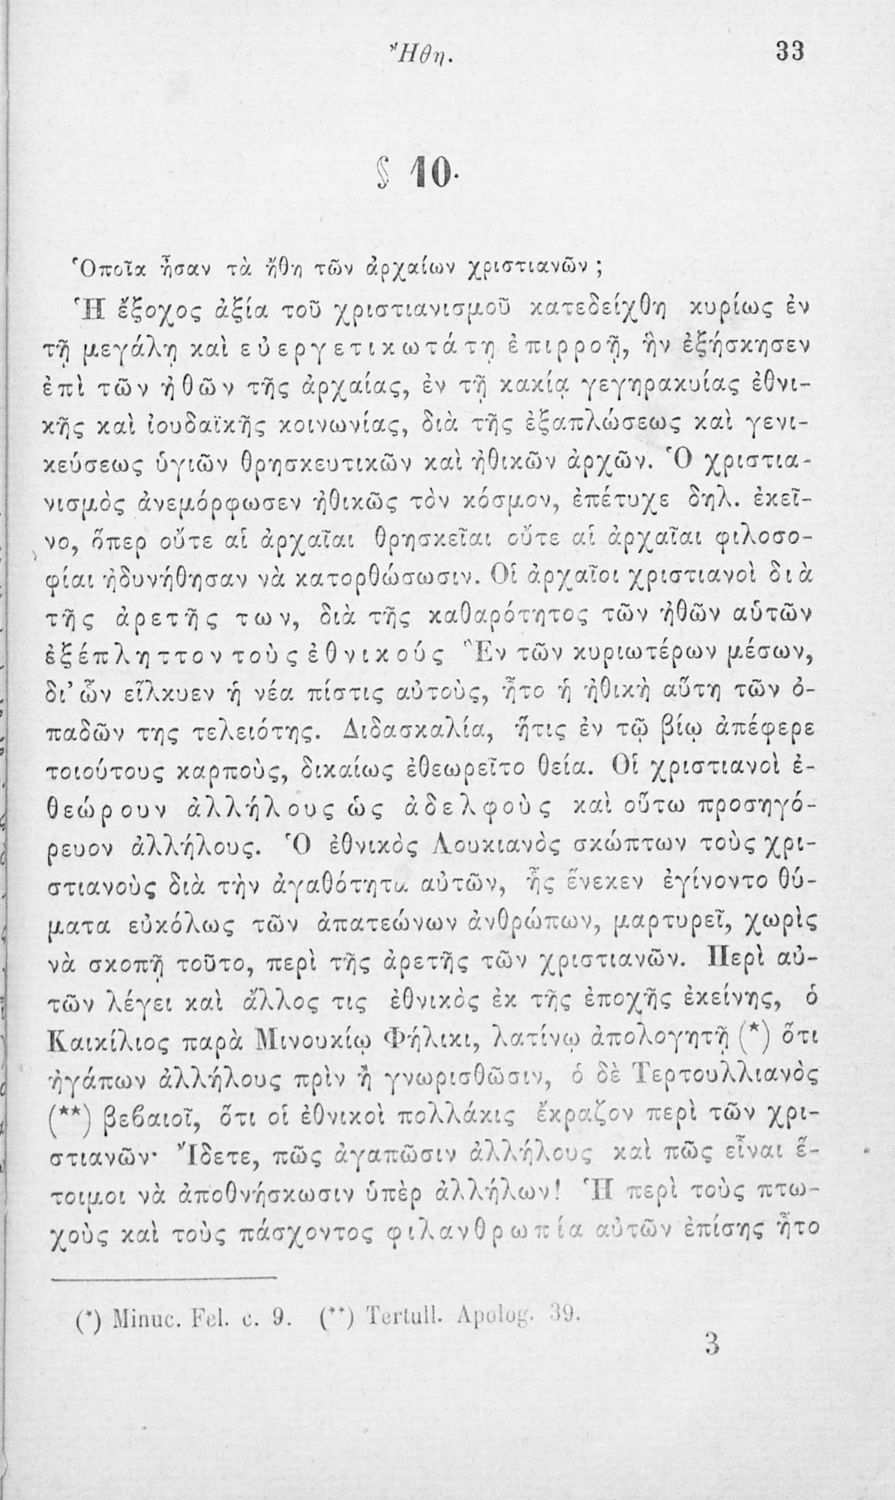 Ἤθη. 33
§ 10.
Ὁποῖα ἦσαν τὰ ἤθη τῶν ἀρχαίων χριστιανῶν ;
Ἡ ἔξοχος ἀξία τοῦ χριστιανισμοῦ κατεδείχθη κυρίως ἐν
τῇ μεγάλῃ καὶ εὐεργετικωτάτῃ ἐπιρροῇ, ἣν ἐξήσκησεν
ἐπὶ τῶν ἠθῶν τῆς ἀρχαίας, ἐν τῇ κακίᾳ γεγηρακυίας ἐθνι-
κῆς καὶ ἰουδαϊκῆς κοινωνίας, διὰ τῆς ἐξαπλώσεως καὶ γενι-
κεύσεως ὑγιῶν θρησκευτικῶν καὶ ἠθικῶν ἀρχῶν. Ὁ χριστια-
νισμὸς ἀνεμόρφωσεν ἠθικῶς τὸν κόσμον, ἐπέτυχε δηλ. ἐκεῖ-
νο, ὅπερ οὔτε αἱ ἀρχαῖαι θρησκεῖαι οὔτε αἱ ἀρχαῖαι φιλοσο-
φίαι ἠδυνήθησαν νὰ κατορθώσωσιν. Οἱ ἀρχαῖοι χριστιανοὶ διὰ
τῆς ἀρετῆς των, διὰ τῆς καθαρότητος τῶν ἠθῶν αὑτῶν
ἐξέπληττον τοὺς ἐθνικούς Ἓν τῶν κυριωτέρων μέσων,
δι' ὧν εἵλκυεν ἡ νέα πίστις αὐτοὺς, ἦτο ἡ ἠθικὴ αὕτη τῶν ὀ-
παδῶν της τελειότης. Διδασκαλία, ἥτις ἐν τῷ βίῳ ἀπέφερε
τοιούτους καρποὺς, δικαίως ἐθεωρεῖτο θεία. Οἱ χριστιανοὶ ἐ-
θεώρουν ἀλλήλους ὡς ἀδελφοὺς καὶ οὕτω προσηγό-
ρευον ἀλλήλους. Ὁ ἐθνικὸς Λουκιανὸς σκώπτων τοὺς χρι-
στιανοὺς διὰ τὴν ἀγαθότητα αὐτῶν, ἧς ἕνεκεν ἐγίνοντο θύ-
ματα εὐκόλως τῶν ἀπατεώνων ἀνθρώπων, μαρτυρεῖ, χωρὶς
νὰ σκοπῇ τοῦτο, περὶ τῆς ἀρετῆς τῶν χριστιανῶν. Περὶ αὐ-
τῶν λέγει καὶ ἄλλος τις ἐθνικὸς ἐκ τῆς ἐποχῆς ἐκείνης, ὁ
Καικίλιος παρὰ Μινουκίῳ Φήλικι, λατίνῳ ἀπολογητῇ (*) ὅτι
ἠγάπων ἀλλήλους πρὶν ἢ γνωρισθῶσιν, ὁ δὲ Τερτουλλιανὸς
(**) βεβαιοῖ, ὅτι οἱ ἐθνικοὶ πολλάκις ἔκραζον περὶ τῶν χρι-
στιανῶν· Ἴδετε, πῶς ἀγαπῶσιν ἀλλήλους καὶ πῶς εἶναι ἕ-
τοιμοι νὰ ἀποθνήσκωσιν ὑπὲρ ἀλλήλων! Ἡ περὶ τοὺς πτω-
χοὺς καὶ τοὺς πάσχοντος φιλανθρωπία αὐτῶν ἐπίσης ἦτο
(*) Minuc. Fel. c. 9. (**) Tertull. Apolog. 39.
3